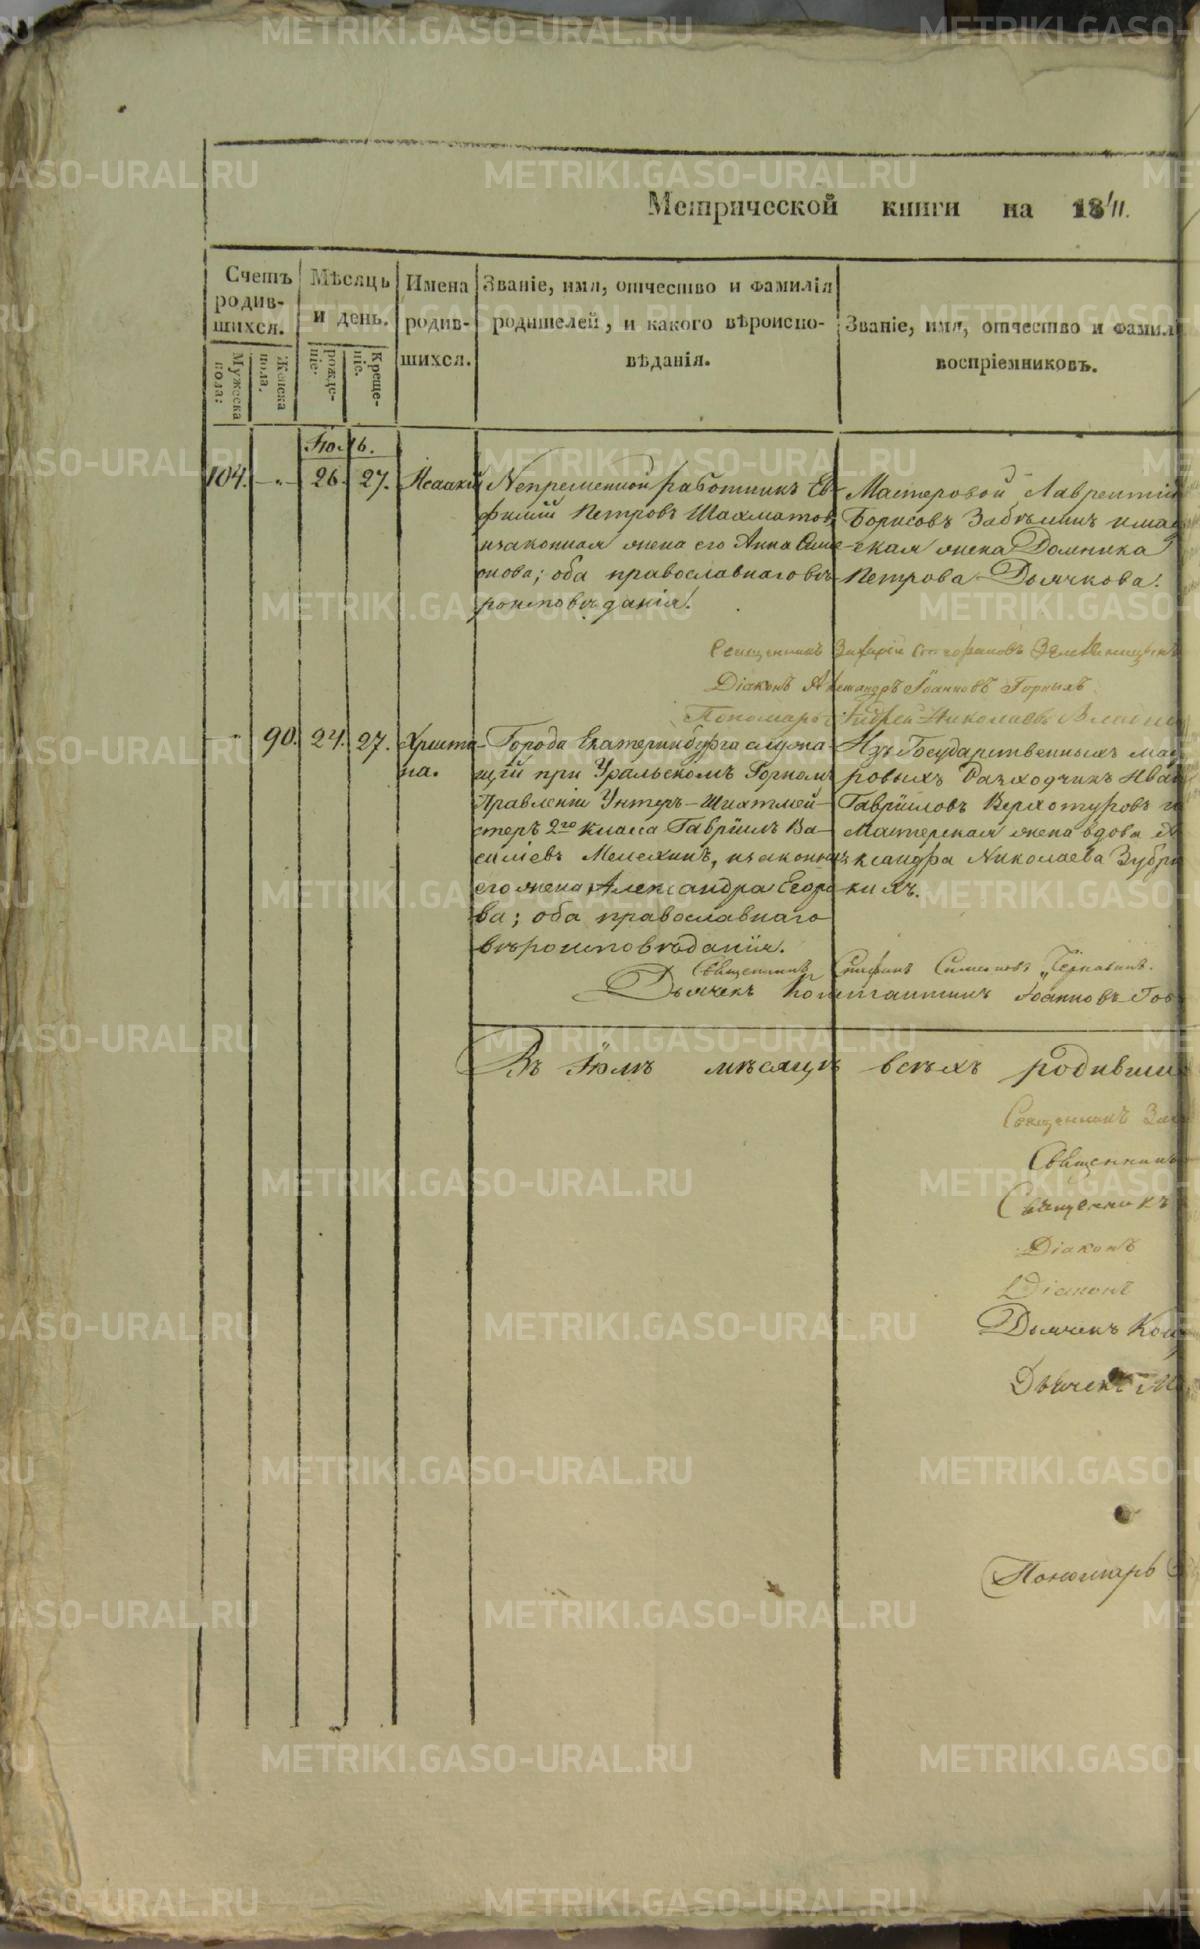 Метрической книги на 18
Счетъ родив-шихся.
Мужеска пола:
Женска пола.
Мѣсяцъ и день.
рожде-ніе.
Креще-ніе.
Имена родив-шихся.
Званіе, имя, отчество и фамилія родителей, и какого вѣроиспо-вѣданія.
Званіе, имя, отчество и фамил
воспріемниковъ.
Іюль.
104.
26.
27.
Исаакій
Непременной работникъ Ев-
фимій Петровъ Шахматовъ,
изаконная жена его Анна Симе-
онова; оба православнаго вѣ-
роисповѣданія.
Мастеровой Лаврентій
Борисовъ Забѣлинъ имас
-ская жена Домника
Петрова Дьячкова.
Священникъ Захарій Стефановъ
Діаконъ Александръ Іоанновъ Горныхъ
Пономарь Андрей Николаевъ
90.
24.
27.
Христи-
на.
Города Екатеринбурга служа-
щій при Уральскомъ Горномъ
Правленіи Унтеръ-Шихтмей-
стеръ 2го класа Гавріилъ Ва-
силіевъ Мелехинъ, изаконная
его жена Александра Егоро-
ва; оба православнаго
вѣроисповѣданія.
Изъ Государственныхъ мас
ровыхъ Расходчикъ Иван
Гавріиловъ Верхотуровъ и
Мастерская жена вдова
ксандра Николаева Зубри
кихъ.
Священникъ Стефанъ Симеоновъ
Дьячекъ Константинъ Іоанновъ
Въ Іюлѣ мѣсяцѣ всѣхъ родивши
Священникъ Зах
Священникъ
Священникъ
Діаконъ
Діаконъ
Дьячекъ Кон
Дьячекъ М
Пономарь
METRIKI.GASO-URAL.RU